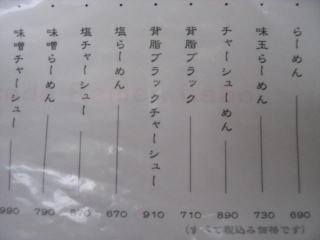 らーめん 690
味玉らーめん 730
チャーシューめん 890
背脂ブラック 710
背脂ブラックチャーシュー 910
塩らーめん 670
塩チャーシュー 870
味噌らーめん 790
味噌チャーシュー 990
(すべて税込み価格です)